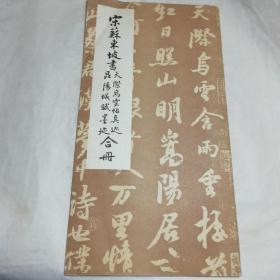 宋蘇東坡書天際烏雲帖真迹
昆陽城賦墨迹合冊
天際烏雲含雨重樓前
紅日照山明嵩陽居士
萬里情
夢中詩也僕